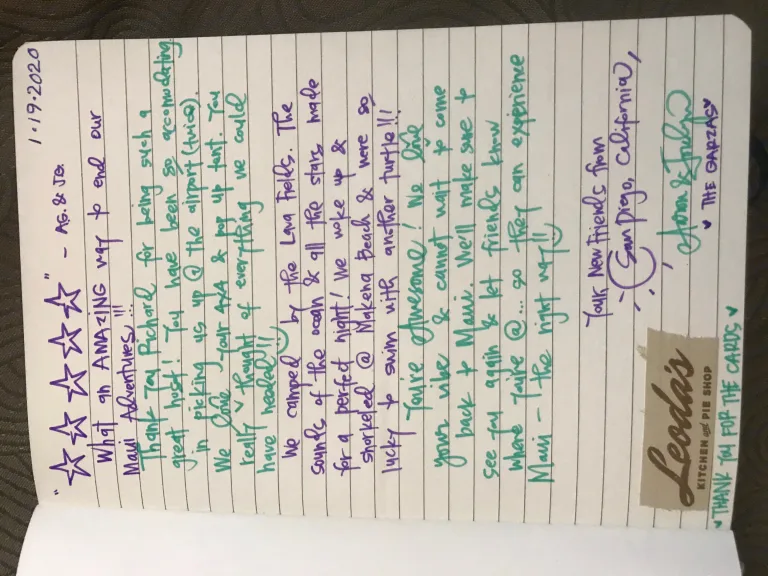 1·19·2020
"☆☆☆☆☆" - AG. & JG.
What an AMAZING way to end our
Maui Adventures!!!
Thank you Richard for being such a
great host! You have been so accomodating
in picking us up @ the airport (twice).
We love your 4x4 & pop up tent. You
really thought of everything we could
have needed!!
We camped by the Lava Fields. The
sounds of the ocean & all the stars made
for a perfect night! We woke up &
snorkeled @ Makena Beach & were so
lucky to swim with another turtle!!!
You're Awesome! We love
your vibe & cannot wait to come
back to Maui. We'll make sure to
see you again & let friends know
where you're @... so they can experience
Maui - the right way!!
Your New Friends from
San Diego, California,
& 
♥ THE GARZAS ♥
Leoda's
KITCHEN and PIE SHOP
♥ THANK YOU FOR THE CARDS ♥